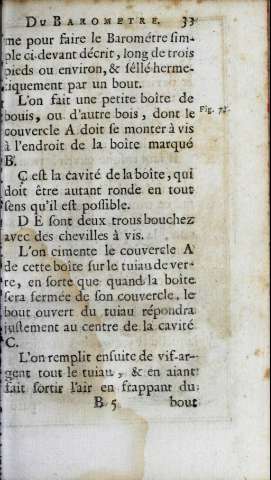 DU BAROMETRE. 33
me pour faire le Barométre sim-
ple ci-devant décrit, long de trois
pieds ou environ, & séllé herme-
tiquement par un bout.
L'on fait une petite boîte de
bouis, ou d'autre bois, dont le
Fig. 78.
couvercle A doit se monter à vis
à l'endroit de la boîte marqué
B.
C est la cavité de la boîte, qui
doit être autant ronde en tout
sens qu'il est possible.
D E sont deux trous bouchez
avec des chevilles à vis.
L'on cimente le couvercle A
de cette boîte sur le tuiau de ver-
re, en sorte que quand la boîte
sera fermée de son couvercle, le
bout ouvert du tuiau répondra
justement au centre de la cavité
C.
L'on remplit ensuite de vif-ar-
gent tout le tuiau, & en aiant
fait sortir l'air en frappant du
B 5 bout